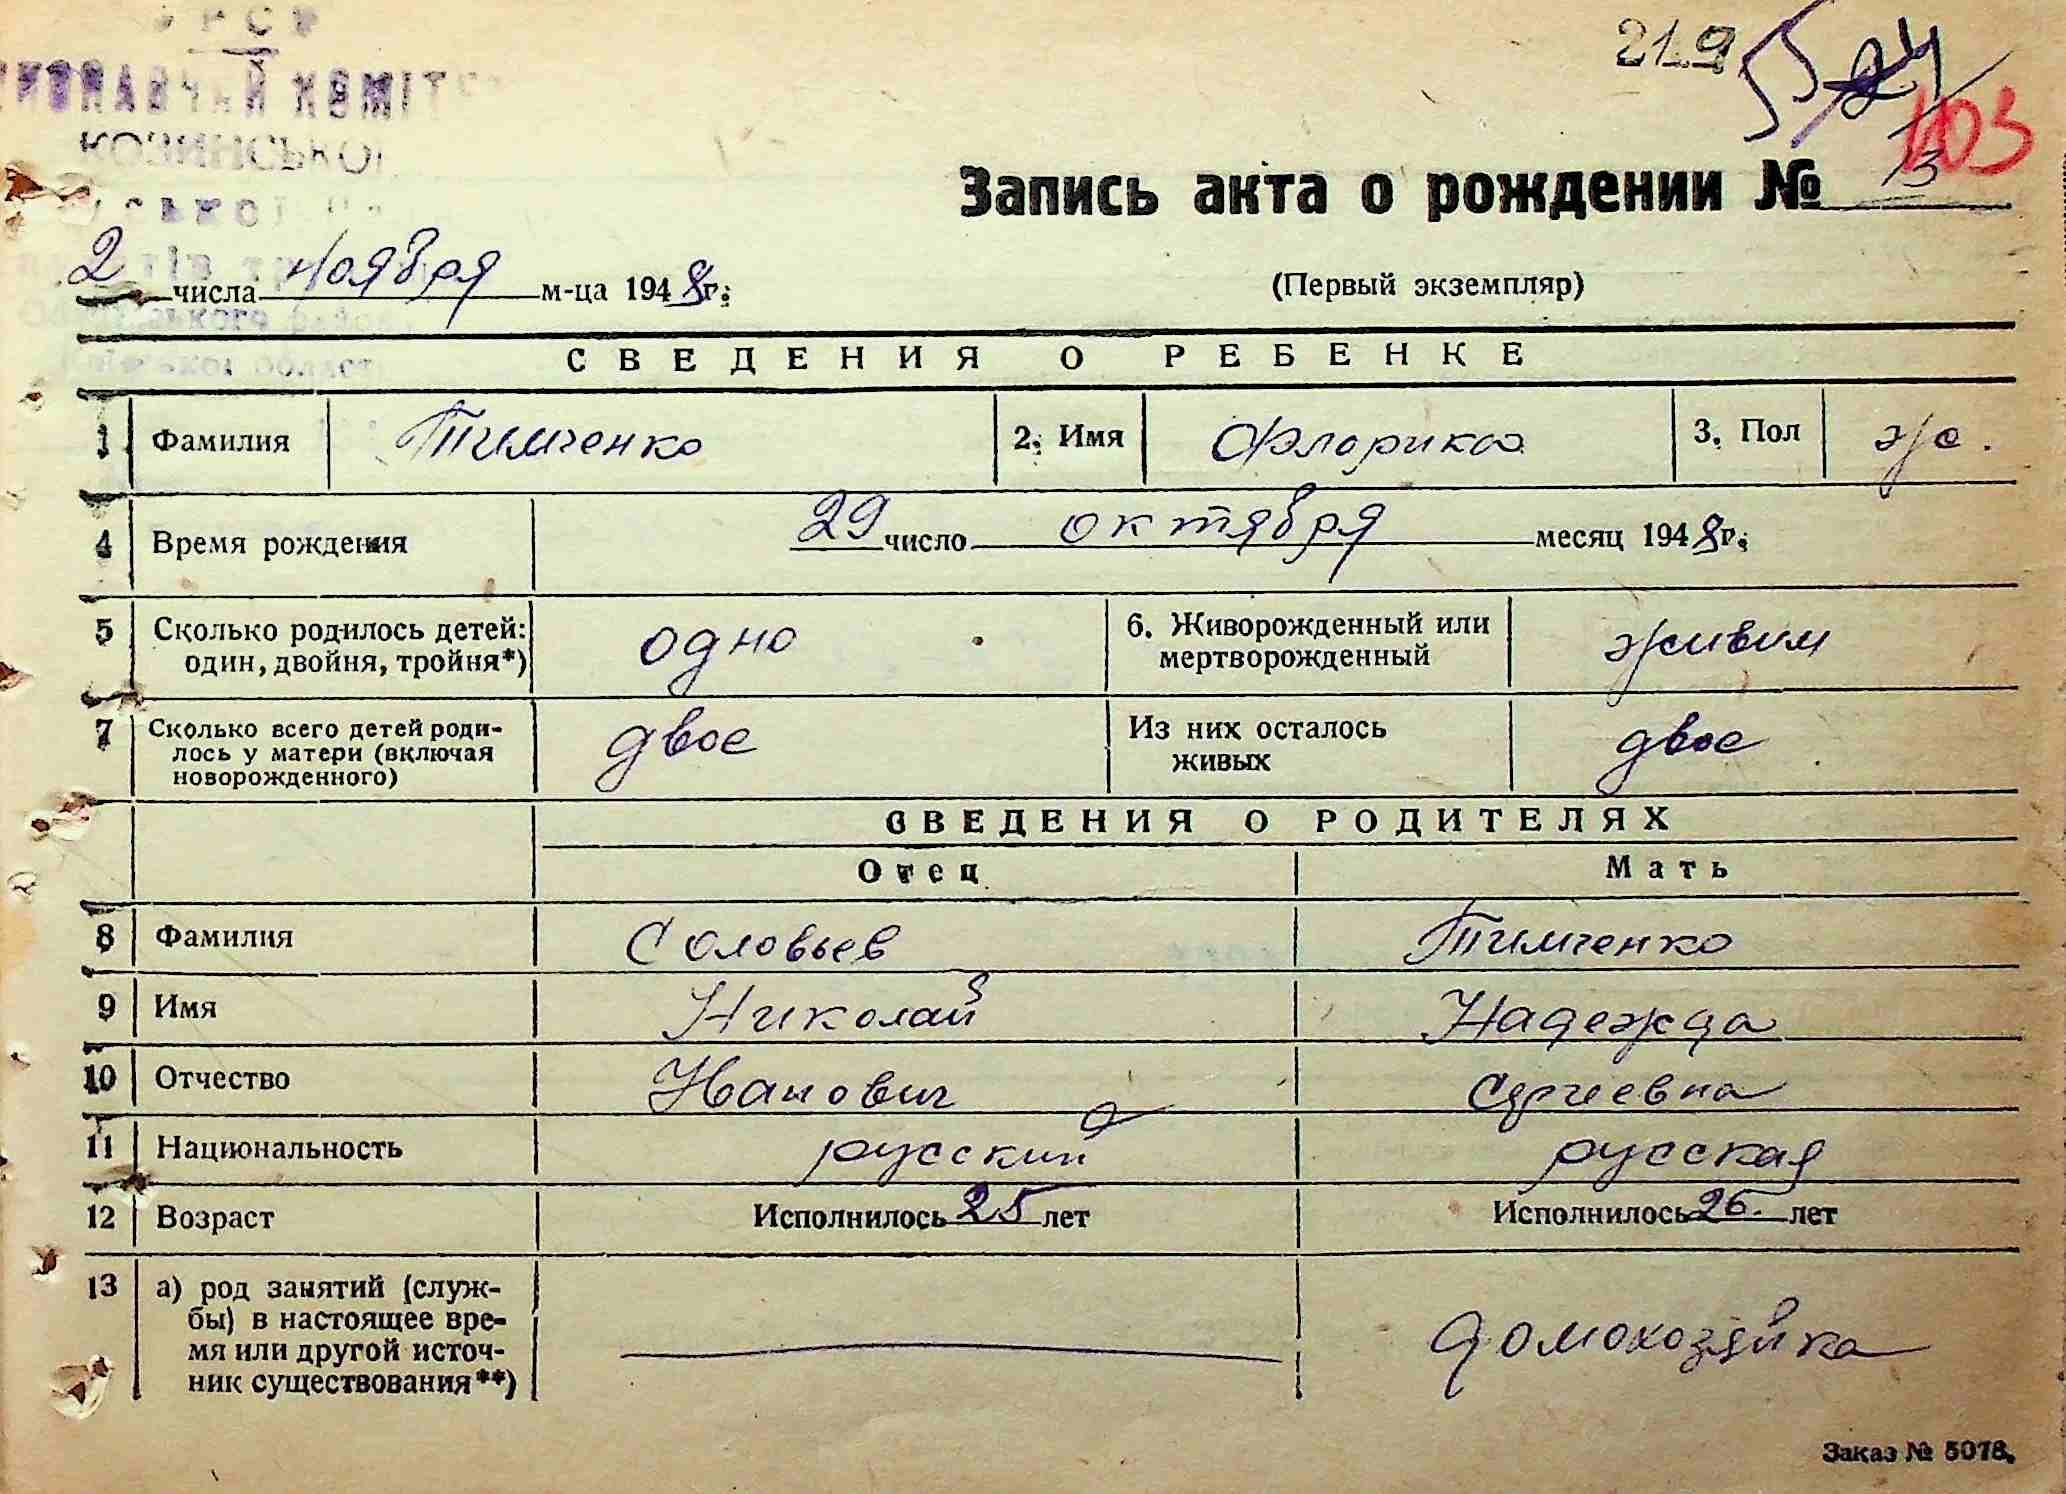 УРСР
ВИКОНАВЧИЙ КОМІТЕТ
КОЗИНСЬКОЇ
Київської област
219
55
24
103
Запись акта о рождении № 13
2 числа ноября м-ца 1948г.
(Первый экземпляр)
СВЕДЕНИЯ О РЕБЕНКЕ
1 Фамилия Тимченко 2. Имя Флорика 3. Пол ж.
4 Время рождения 29 число октября месяц 1948г.
5 Сколько родилось детей: один, двойня, тройня*) одно 6. Живорожденный или мертворожденный живим
7 Сколько всего детей родилось у матери (включая новорожденного) двое Из них осталось живых двое
СВЕДЕНИЯ О РОДИТЕЛЯХ
Отец Мать
8 Фамилия Соловьев Тимченко
9 Имя Николай Надежда
10 Отчество Иванович Сергеевна
11 Национальность русский русская
12 Возраст Исполнилось 25 лет Исполнилось 26. лет
13 а) род занятий (служ-
бы) в настоящее вре-
мя или другой источ-
ник существования**) домохозяйка
Заказ № 5078.